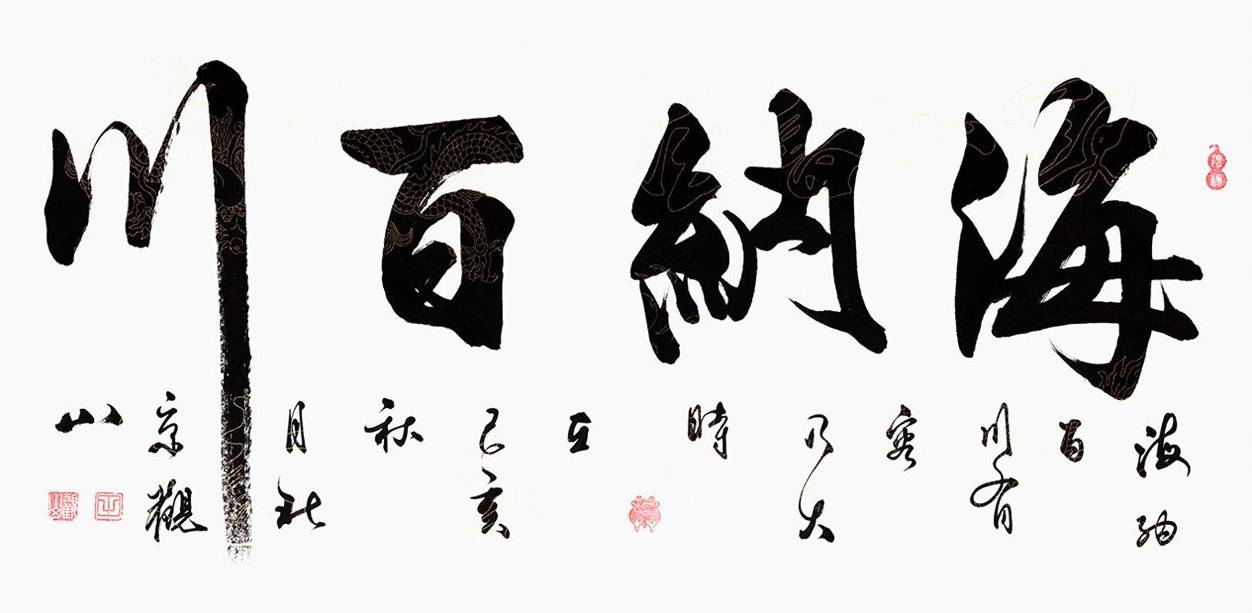 海納百川
海納
百
川有
容
乃大
時
在
己亥
秋
月北
京觀
山